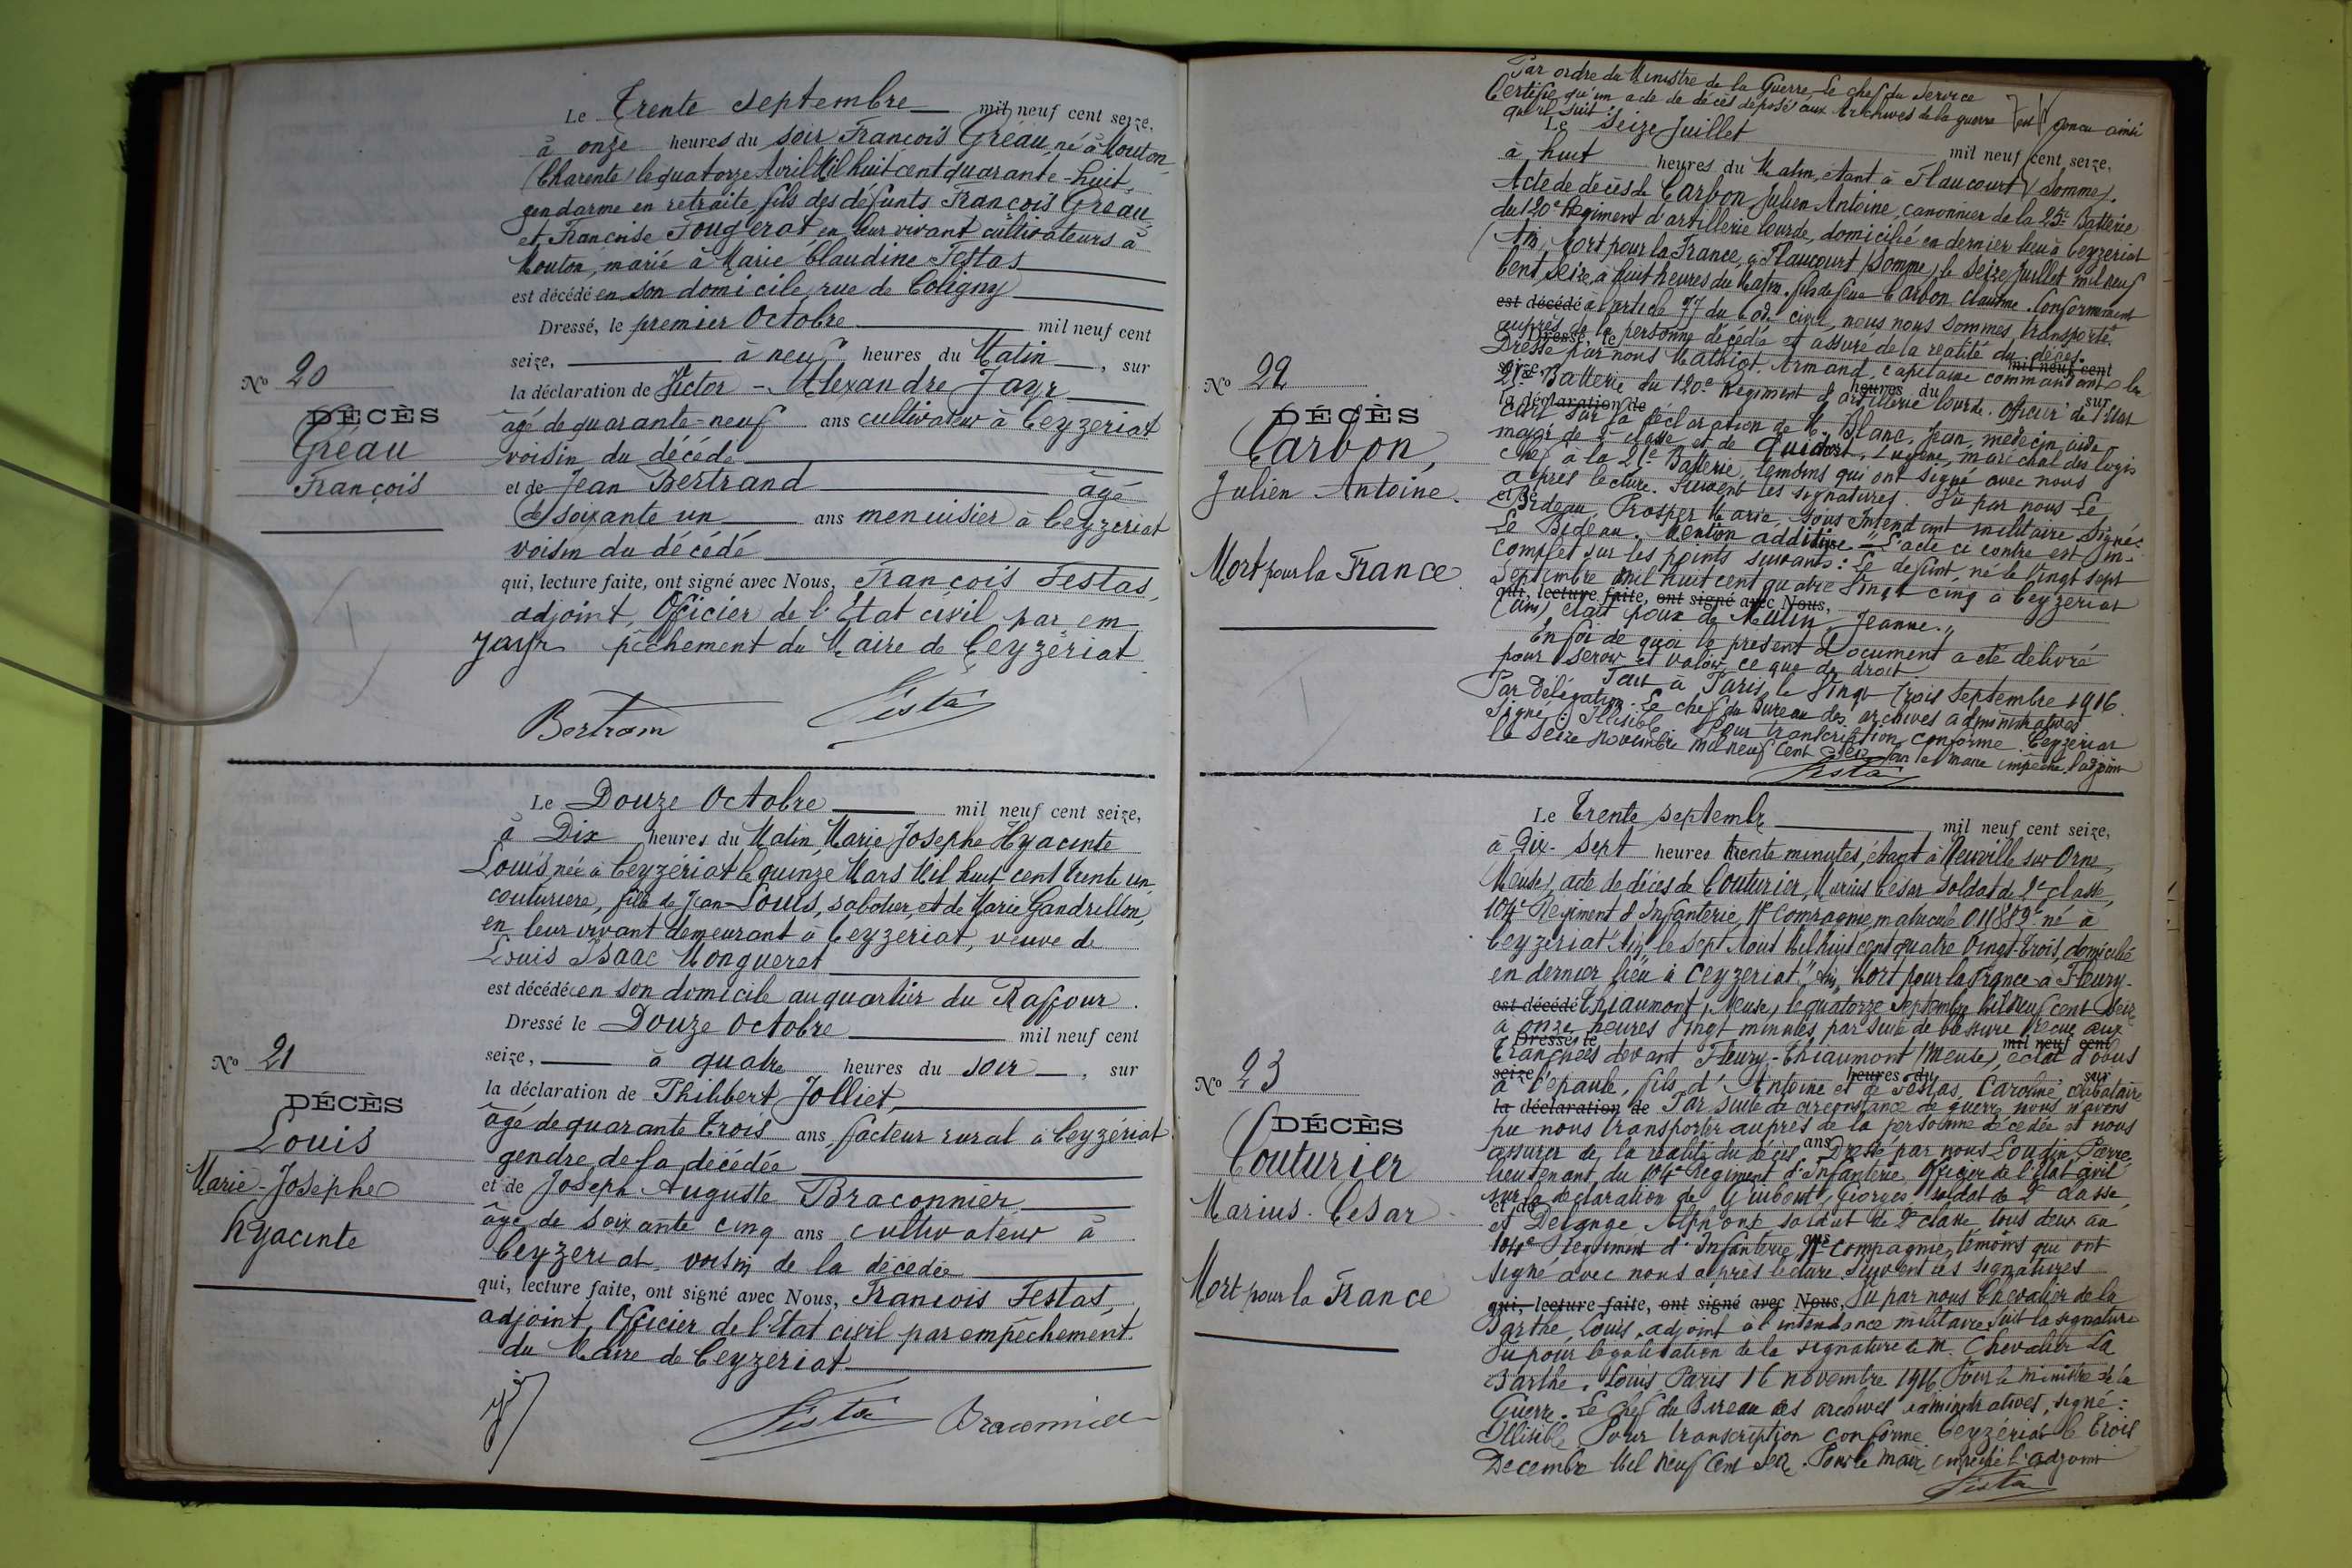 Le Trente septembre mil neuf cent seize,
à onze heures du soir François Gréau, né à Mouton,
(Charente) le quatorze Avril Mil huit cent quarante-huit,
gendarme en retraite, fils des défunts François Gréau
et Françoise Fougerat en leur vivant cultivateurs à
Mouton, marié à Marie Claudine Festas
est décédé en son domicile, rue de Coligny
Dressé, le premier Octobre mil neuf cent
seize, à neuf heures du Matin, sur
la déclaration de Victor-Alexandre Jayr
âgé de quarante-neuf ans cultivateur à Ceyzériat
voisin du décédé
et de Jean Bertrand âgé
de soixante un ans menuisier à Ceyzériat
voisin du décédé
qui, lecture faite, ont signé avec Nous, François Festas,
adjoint, Officier de l'Etat civil par em-
Jayr pêchement du Maire de Ceyzériat
Bertram Festas
No 20
DÉCÈS
Gréau
François
Le Douze Octobre mil neuf cent seize,
à Dix heures du Matin, Marie Josephe Hyacinte
Louis, née à Ceyzériat le quinze Mars Mil huit cent trente un,
couturière, fille de Jean-Louis, sabotier, et de Marie Gandrillon,
en leur vivant demeurant à Ceyzériat, veuve de
Louis Isaac Mongueret
est décédée en son domicile au quartier du Raffour.
Dressé le Douze Octobre mil neuf cent
seize, à quatre heures du soir, sur
la déclaration de Philibert Jolliet,
âgé de quarante trois ans, facteur rural à Ceyzériat
gendre de la décédée
et de Joseph Auguste Braconnier
âgé de soixante cinq ans cultivateur à
Ceyzériat, voisin de la décédée
qui, lecture faite, ont signé avec Nous, François Festas,
adjoint, Officier de l'Etat civil par empêchement
du Maire de Ceyzériat
Festas Braconnier
No 21
DÉCÈS
Louis
Marie-Josephe
hyacinte
Par ordre du Ministre de la Guerre, Le chef du Service
Certifie qu'un acte de décès déposé aux Archives de la guerre est conçu ainsi
qu'il suit:
Le Seize Juillet mil neuf cent seize,
à huit heures du Matin, étant à Flaucourt (Somme).
Acte de décès de Carbon Julien Antoine, canonnier de la 25e Batterie
du 120e Régiment d'artillerie lourde, domicilié en dernier lieu à Ceyzériat
(Ain, Mort pour la France, à Flaucourt (Somme, le seize Juillet mil neuf
Cent seize, à huit heures du Matin. fils de feu Carbon Claudine. Conformément
est décédé à l'article 77 du Code civil, nous nous sommes transporté
auprès de la personne décédée et assuré de la réalité du décès.
Dressé, le mil neuf cent
Dressé par nous Mathiot, Armand, Capitaine commandant la
seize heures du
21e Batterie du 120e Régiment d'artillerie lourde. Officier de l'Etat
la déclaration de sur
Civil sur la déclaration de M. Blanc, Jean, médecin aide
major de 2e classe et de Guidort, Eugène, maréchal des logis
chef à la 21e Batterie, témoins qui ont signé avec nous
après lecture. Suivent les signatures. Vu par nous Le
et de
Bideau, Prosper Marie, sous Intendant militaire. Signé:
Le Bideau. Mention additive "L'acte ci contre est in-
complet sur les points suivants: Le défunt, né le Vingt sept
Septembre Mil huit cent quatre Vingt cinq à Ceyzériat
qui, lecture faite, ont signé avec Nous,
(Ain) était époux de Mulin Jeanne."
En foi de quoi le présent document a été délivré
pour servir et valoir ce que de droit
Fait à Paris, le Vingt Trois Septembre 1916.
Par Délégation. Le chef du Bureau des archives administratives
Signé: Illisible Pour transcription conforme. Ceyzériat
le seize Novembre Mil neuf Cent Seize Pour le maire empêché l'adjoint
Festas
No 22
DÉCÈS
Carbon,
Julien Antoine.
Mort pour la France
Le Trente septembre mil neuf cent seize,
à Dix-sept heures trente minutes, étant à Neuville sur Orne,
Meuse, acte de décès de Couturier, Marius César Soldat de 2e classe,
104e Régiment d'Infanterie, 11e Compagnie, matricule 011882 né à
Ceyzériat "Ain, le sept Aout Mil huit cent quatre Vingt-trois, domicilié
en dernier lieu à Ceyzériat" Ain, Mort pour la France à Fleury-
est décédé Thiaumont, Meuse, le quatorze Septembre Mil neuf cent Seize
à onze heures Vingt minutes, par suite de blessure reçue aux
Dressé le mil neuf cent
tranchées devant Fleury-Thiaumont (Meuse), éclat d'obus
seize heures du sur
à l'épaule, fils d'Antoine et de Festas, Caroline célibataire
la déclaration de Par suite de circonstance de guerre nous n'avons
pu nous transporter auprès de la personne décédée et nous
ans
assurer de la réalité du décès. Dressé par nous Loudin, Pierre,
lieutenant du 104e Régiment d'Infanterie, Officier de l'Etat civil
sur la déclaration de Guibout, Georges soldat de 2e classe,
et de
et Delange Alphonse soldat de 2e classe, tous deux au
ans
104e Régiment d'Infanterie, 11e Compagnie, témoins qui ont
signé avec nous après lecture. Suivent les signatures
qui, lecture faite, ont signé avec Nous, Vu par nous Chevalier de la
Barthe, Louis, adjoint à l'intendance militaire, suit la signature
Vu pour légalisation de la signature de M. Chevalier La
Barthe, Louis Paris 16 novembre 1916 Pour le Ministre de la
Guerre. Le Chef du Bureau des archives administratives, signé:
Illisible Pour transcription conforme Ceyzériat le Trois
Decembre Mil neuf Cent Seize. Pour le maire empêché l'adjoint
Festas
No 23
DÉCÈS
Couturier
Marius. César
Mort pour la France